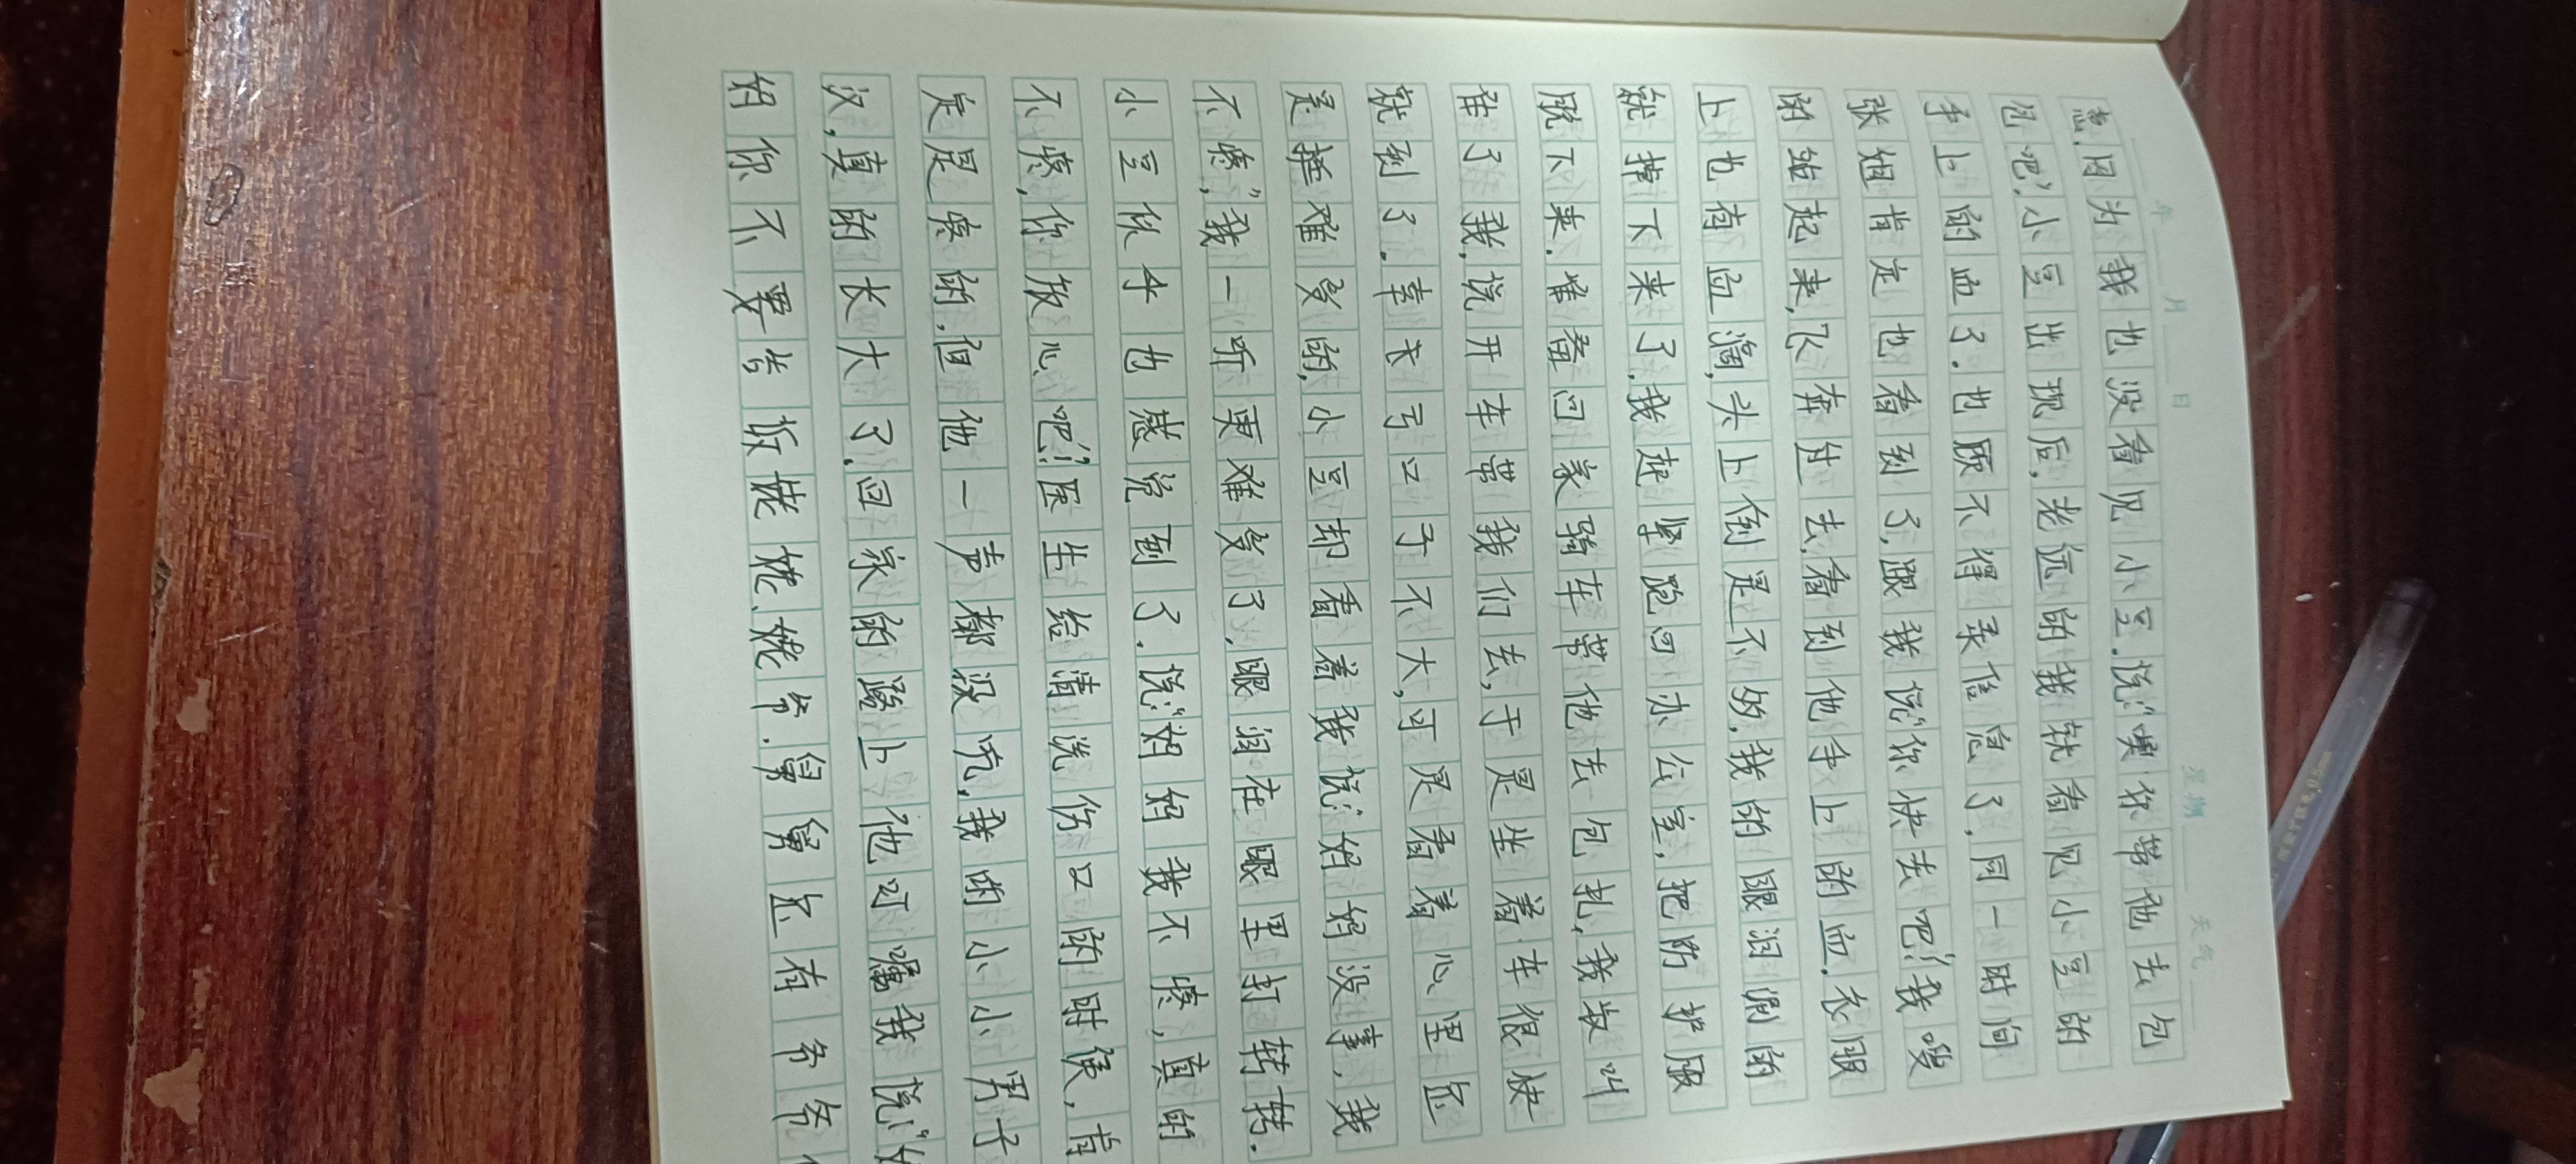 年 月 日 星期 天气
急,因为我也没看见小豆.说:"噢 你带他去包
包吧",小豆出现后,老远的我就看见小豆的
手上的血了.也顾不得录信息了,同一时间
张姐肯定也看到了,跟我说"你快去吧!"我嗖
的站起来,飞奔过去,看到他手上的血.衣服
上也有血滴,头上倒是不多,我的眼泪唰的
就掉下来了,我赶紧跑回办公室,把防护服
脱下来.准备回家骑车带他去包扎,我叔叫
住了我,说开车带我们去,于是坐着车很快
就到了.幸亏口子不大,可是看着心里还
是挺难受的,小豆却看着我说:"妈妈没事,我
不疼",我一听更难受了,眼泪在眼里打转转.
小豆似乎也感觉到了.说:"妈妈我不疼,真的
不疼,你放心吧!"医生给清洗伤口的时候,肯
定是疼的,但他一声都没吭,我的小小男子
汉,真的长大了.回家的路上他叮嘱我说:"妈
妈你不要告诉姥姥、姥爷.舅舅还有爷爷